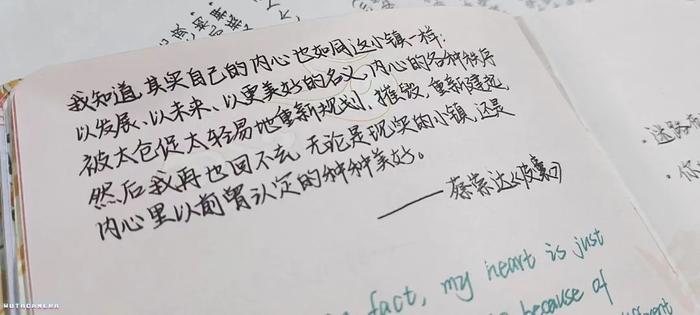 我知道,其实自己的内心也如同这小镇一样:
以发展、以未来、以更美好的名义,内心的各种秩序
被太仓促太轻易地重新规划,摧毁,重新建起,
然后我再也回不去,无论是现实的小镇,还是
内心里以前曾认定的种种美好。
——蔡崇达《皮囊》
fact, my heart is just
because of
WUTACAMERA